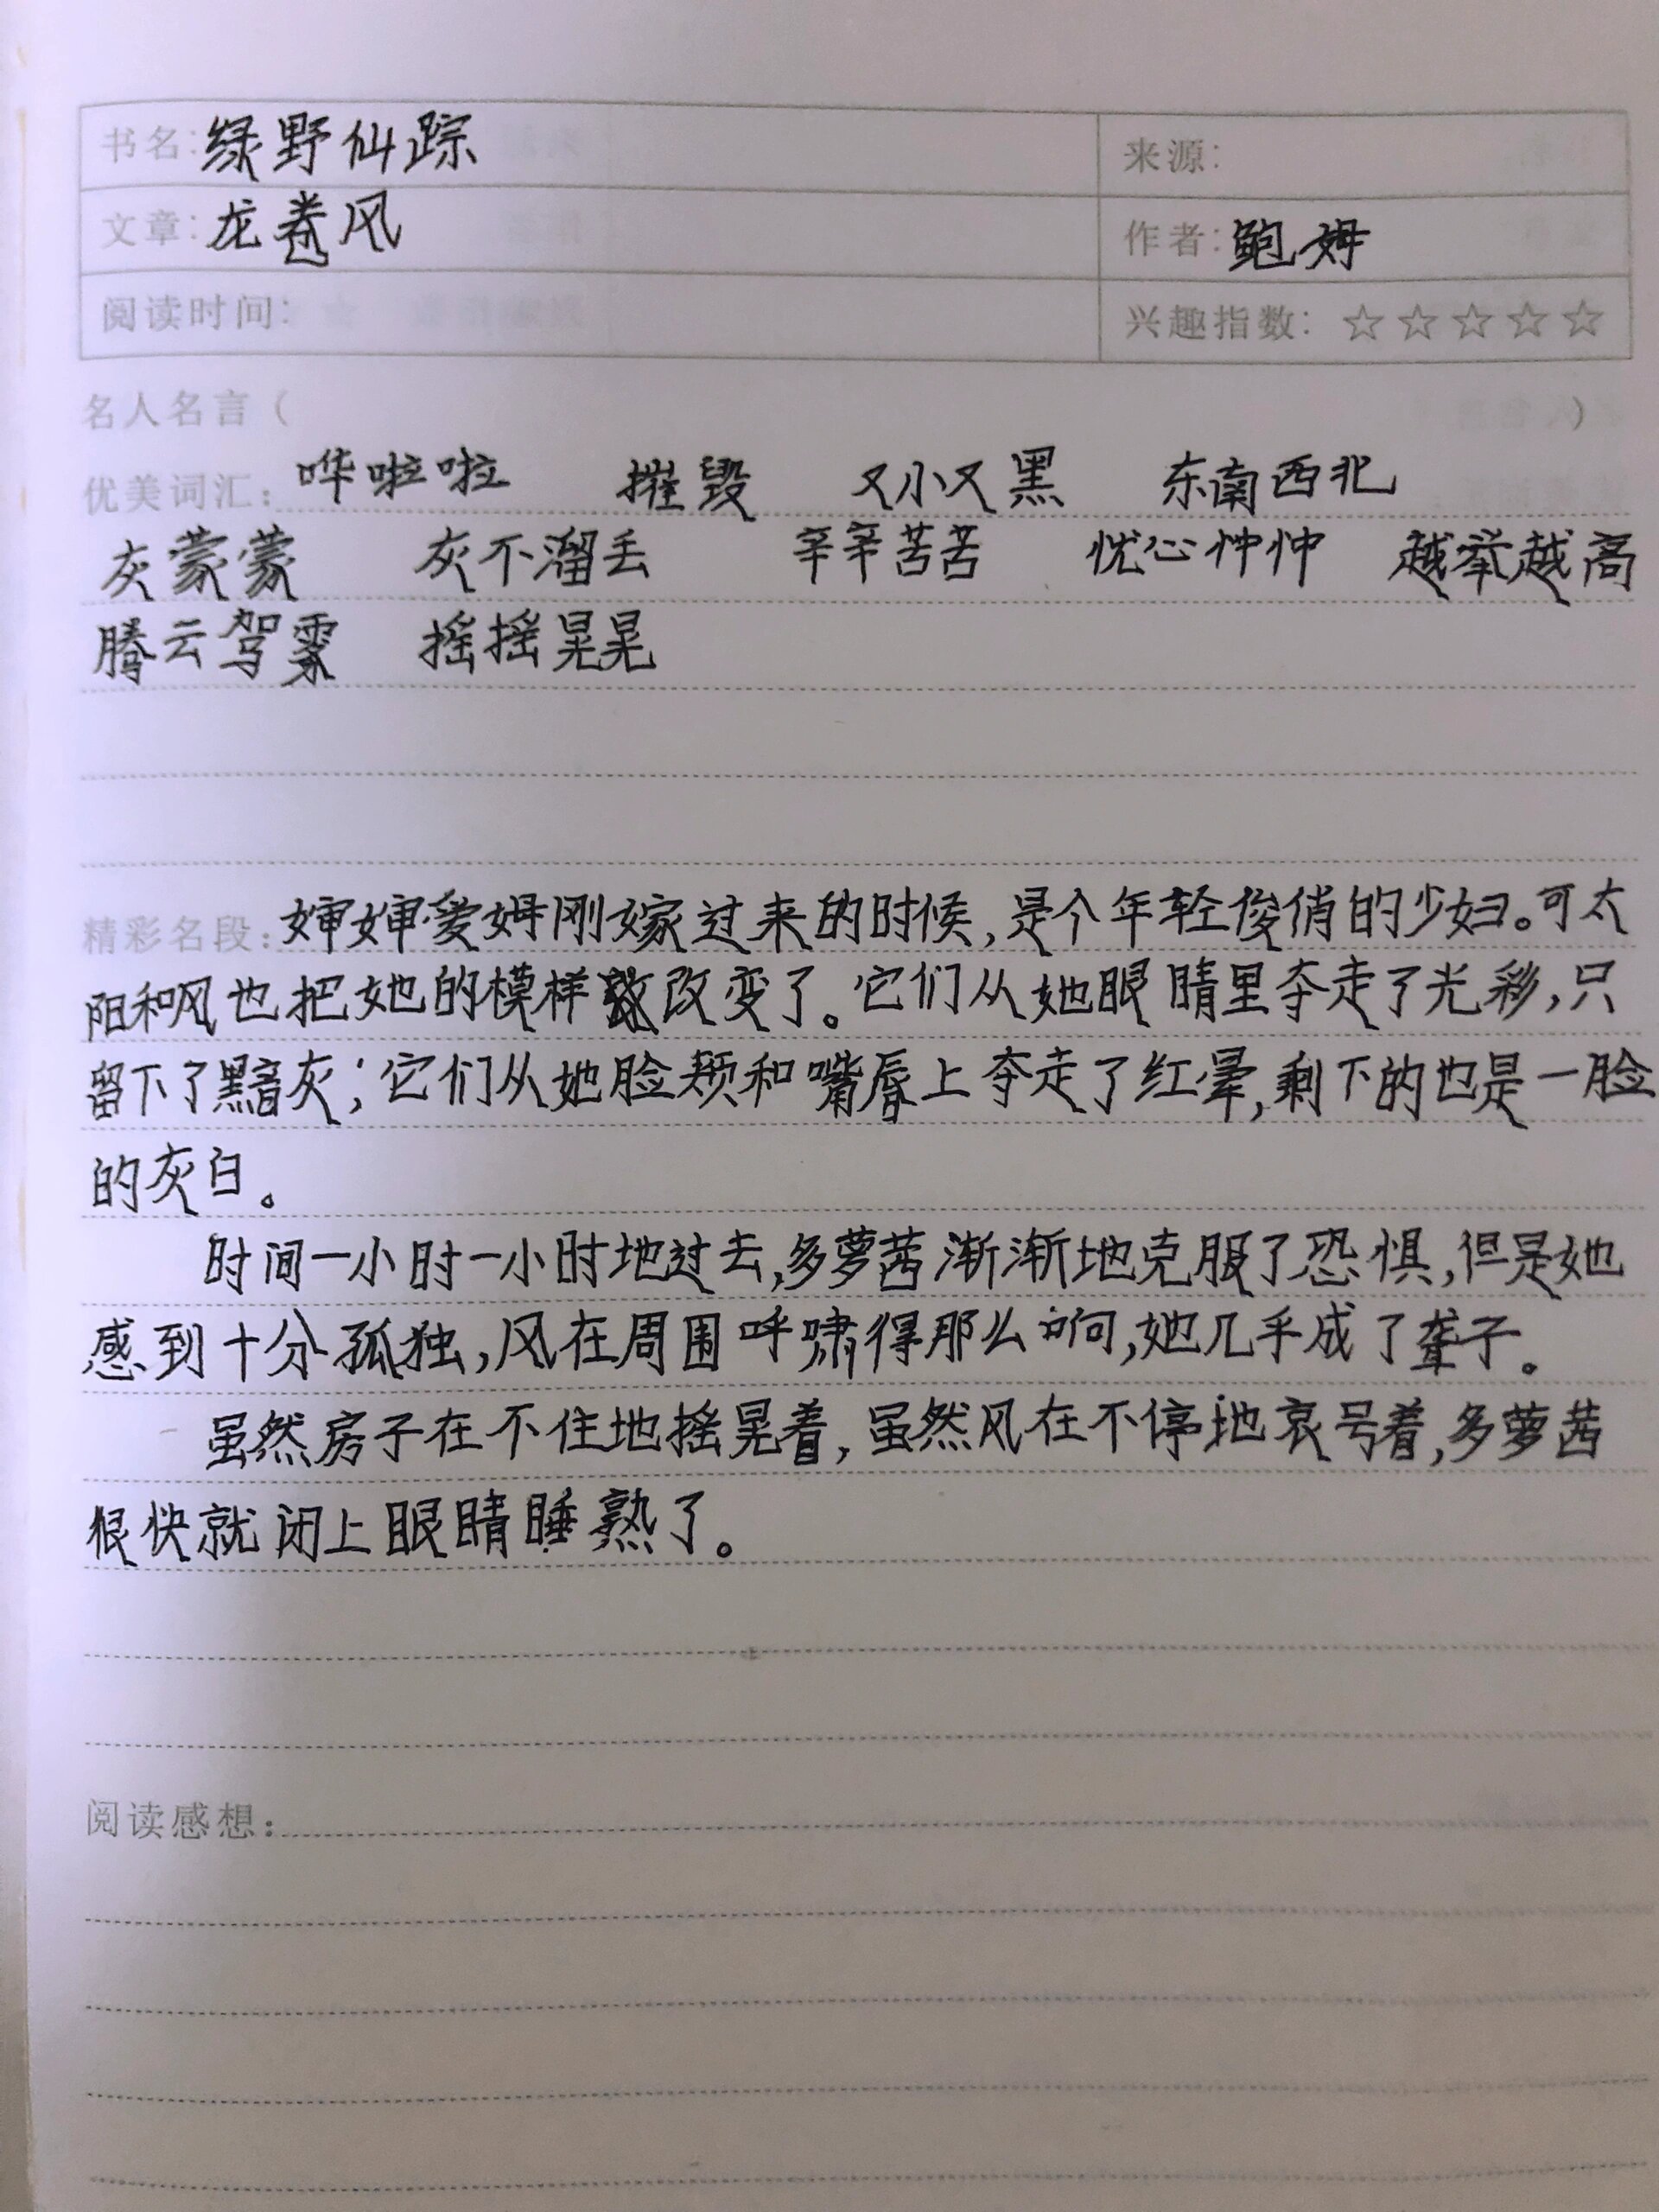 书名：绿野仙踪 来源：
文章：龙卷风 作者：鲍姆
阅读时间： 兴趣指数：☆☆☆☆☆
名人名言（ ）
优美词汇： 哗啦啦 摧毁 又小又黑 东南西北
灰蒙蒙 灰不溜丢 辛辛苦苦 忧心忡忡 越举越高
腾云驾雾 摇摇晃晃
精彩名段：婶婶爱姆刚嫁过来的时候，是个年轻俊俏的少妇。可太
阳和风也把她的模样改变了。它们从她眼睛里夺走了光彩，只
留下了黯灰；它们从她脸颊和嘴唇上夺走了红晕，剩下的也是一脸
的灰白。
时间一小时一小时地过去，多萝茜渐渐地克服了恐惧，但是她
感到十分孤独，风在周围呼啸得那么响，她几乎成了聋子。
虽然房子在不住地摇晃着，虽然风在不停地哀号着，多萝茜
很快就闭上眼睛睡熟了。
阅读感想：